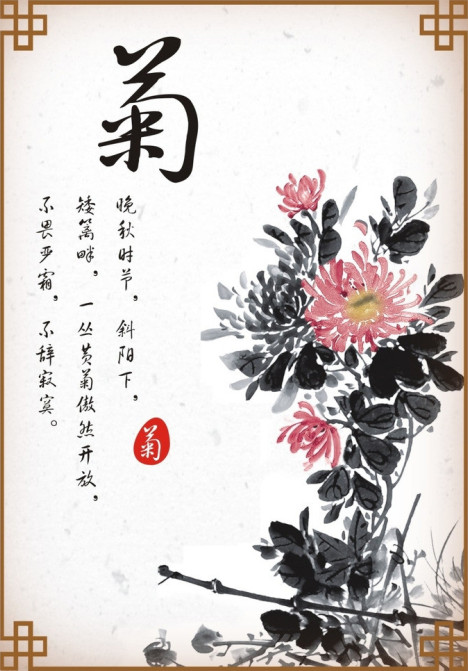 菊
晚秋时节，斜阳下，
矮篱畔，一丛黄菊傲然开放，
不畏严霜，不辞寂寞。
菊